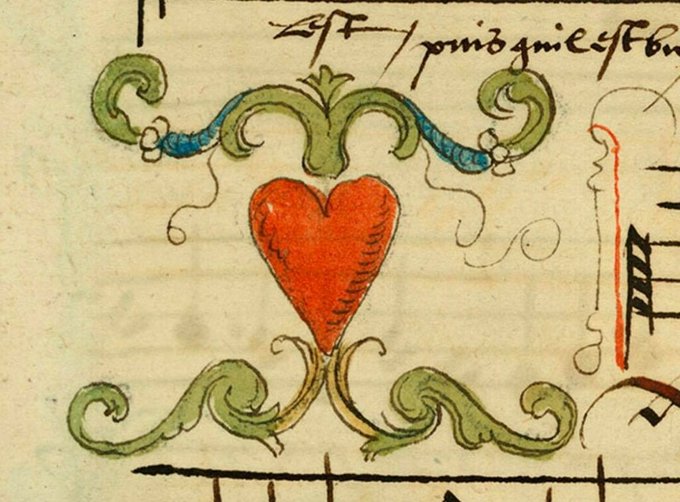 est puis quil est bi